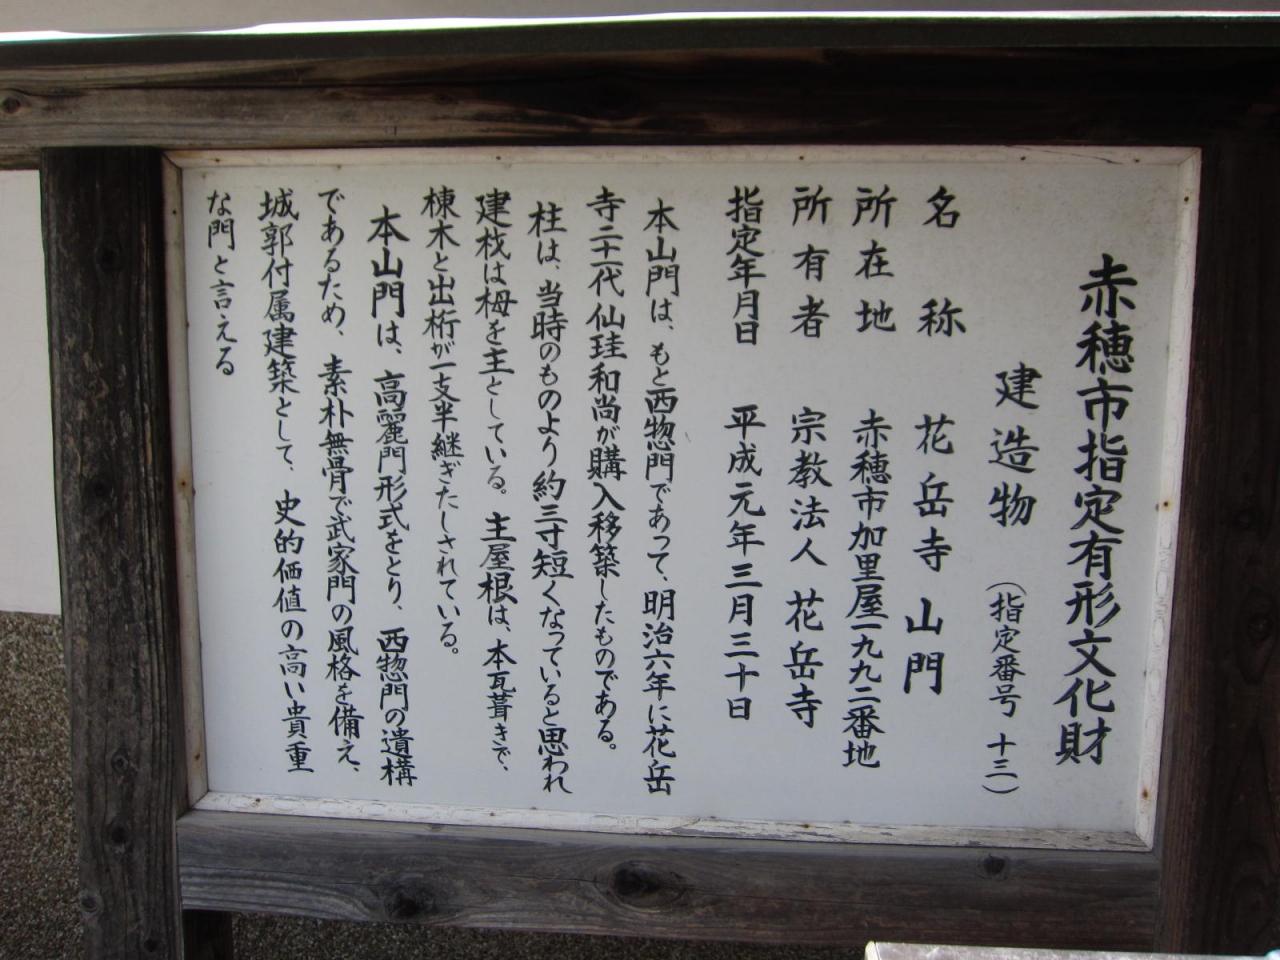 赤穂市指定有形文化財
建造物 (指定番号 十三)
名称 花岳寺 山門
所在地 赤穂市加里屋一九九二番地
所有者 宗教法人 花岳寺
指定年月日 平成元年三月三十日
本山門は、もと西惣門であって、明治六年に花岳
寺二十一代仙珪和尚が購入移築したものである。
柱は、当時のものより約三寸短くなっていると思われ
建材は栂を主としている。主屋根は、本瓦葺きで、
棟木と出桁が一支半継ぎたしされている。
本山門は、高麗門形式をとり、西惣門の遺構
であるため、素朴無骨で武家門の風格を備え、
城郭付属建築として、史的価値の高い貴重
な門と言える